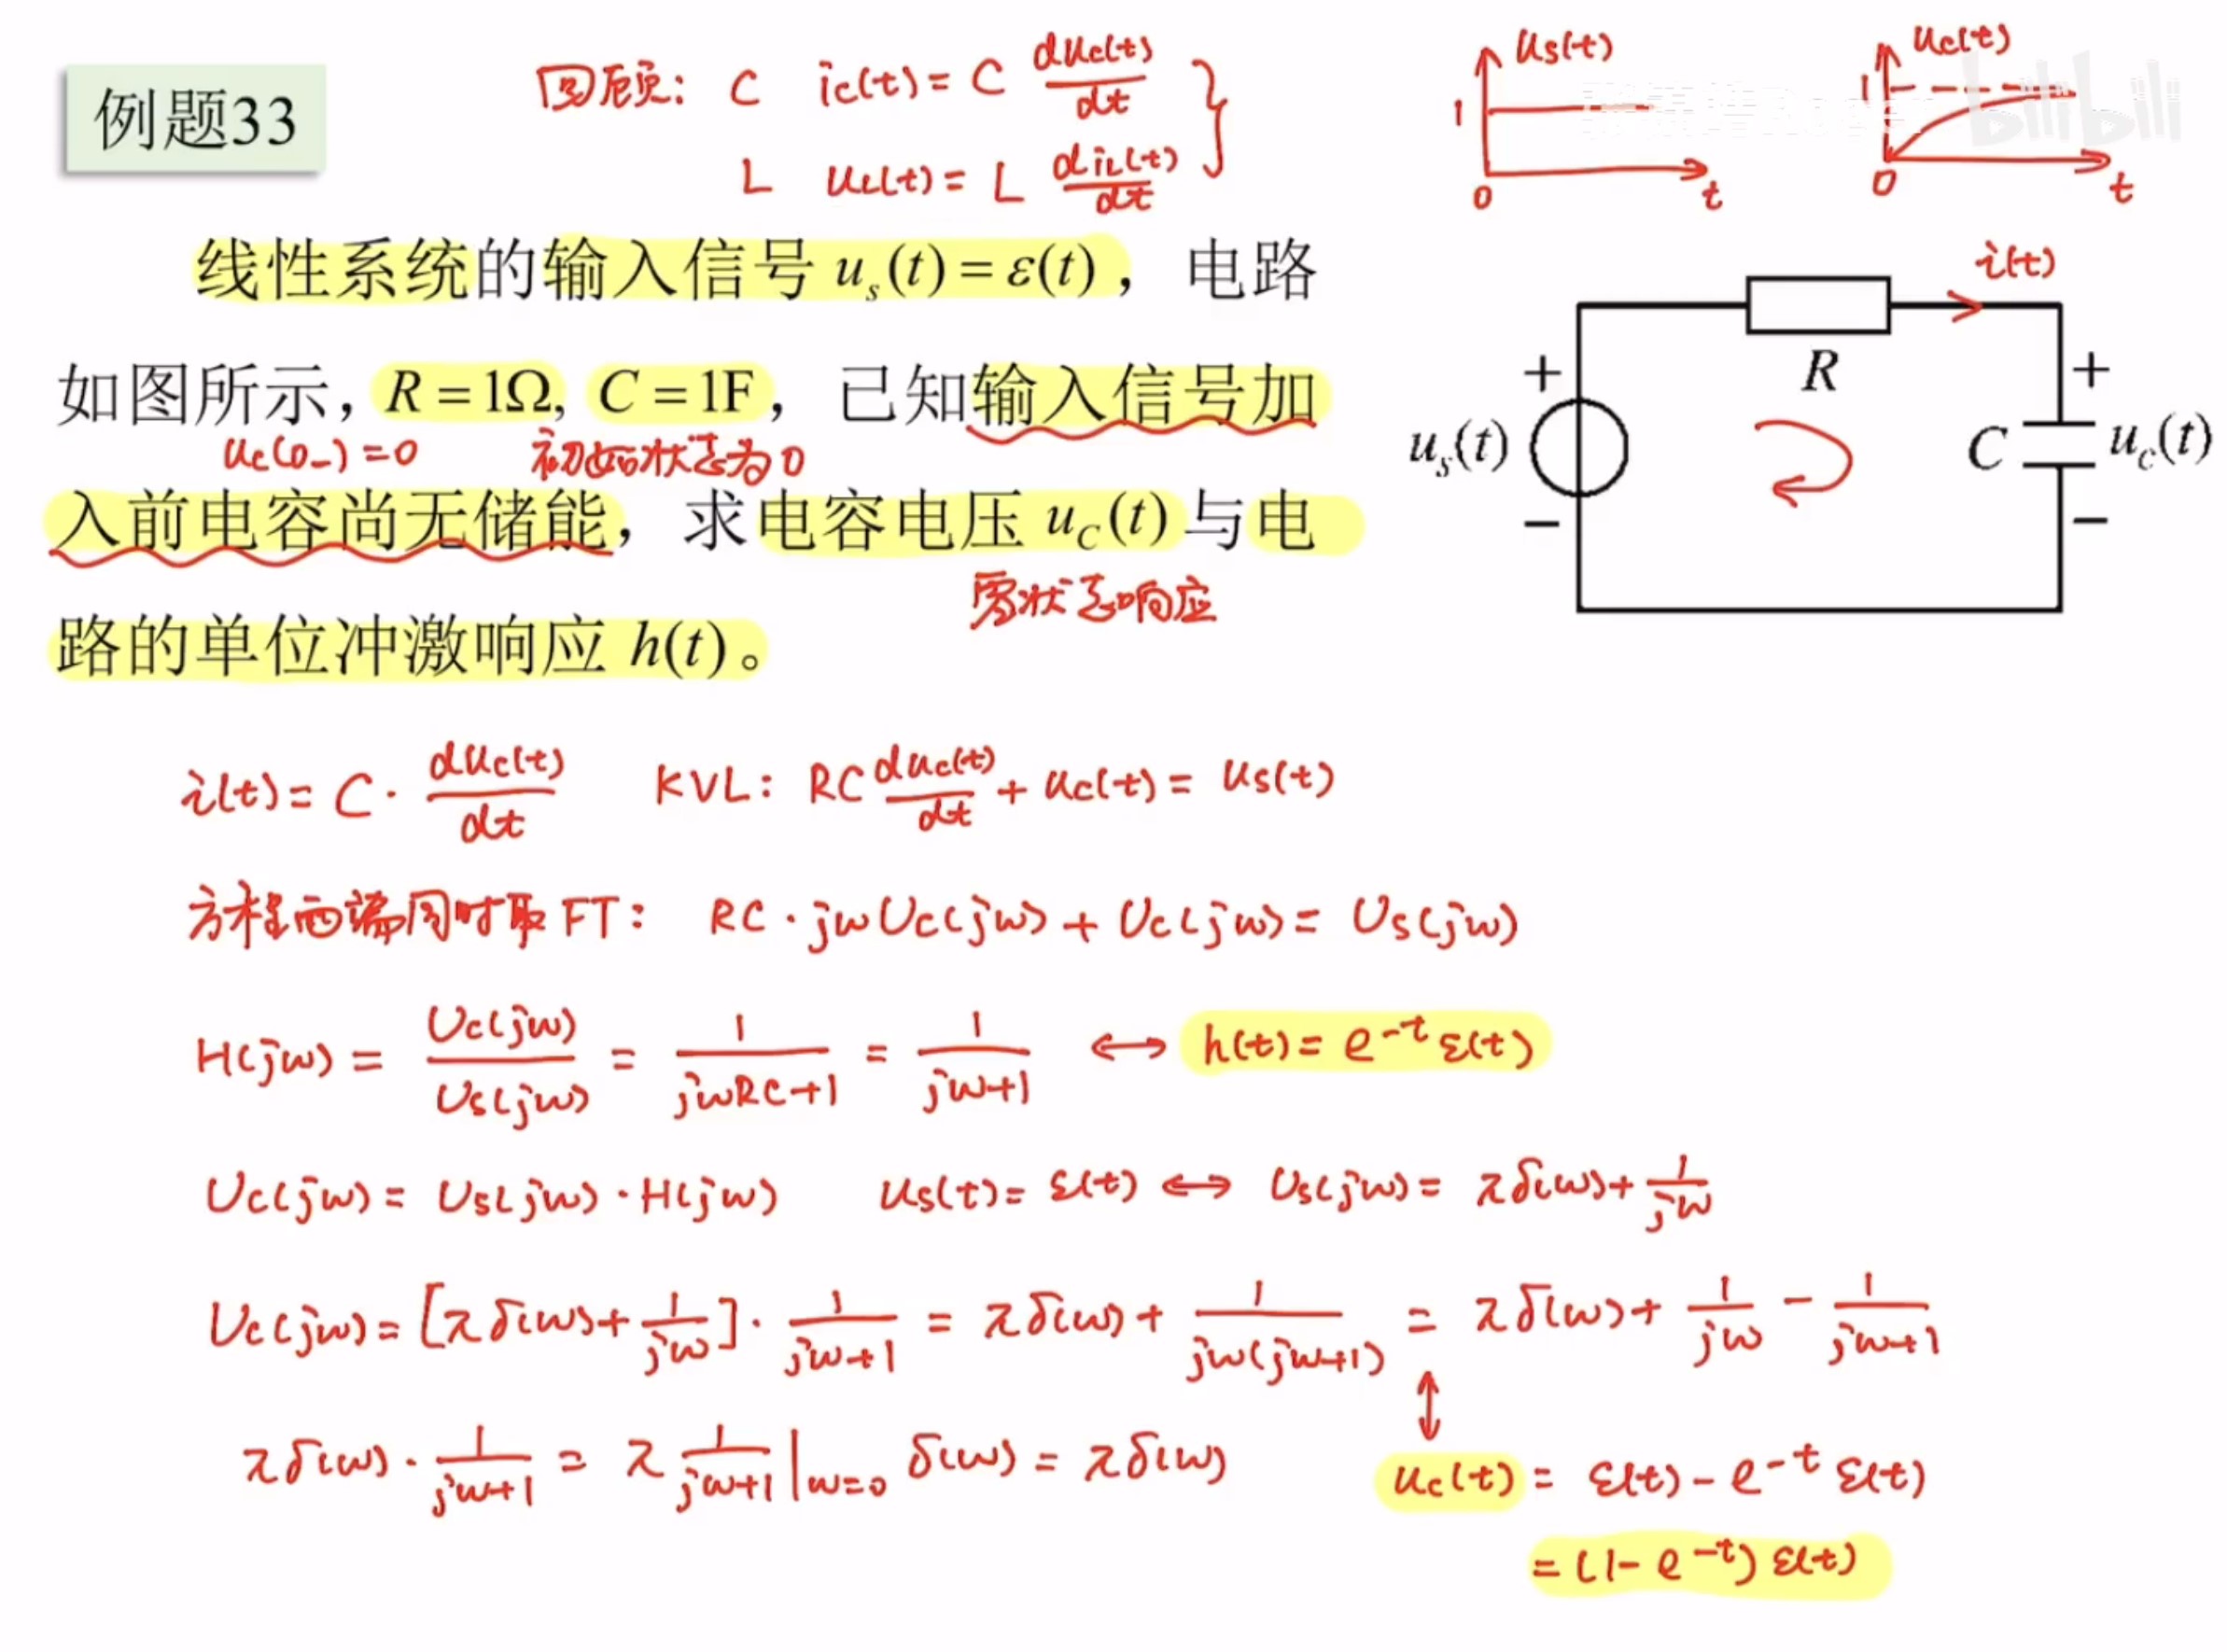 例题33
回顾: C ic(t) = C duc(t)/dt
L uL(t) = L diL(t)/dt
us(t)
1
0
t
uc(t)
1
0
t
bilibili
线性系统的输入信号 us(t) = ε(t), 电路
如图所示, R = 1Ω, C = 1F, 已知输入信号加
uc(0-) = 0 初始状态为0
入前电容尚无储能, 求电容电压 uC(t) 与电
零状态响应
路的单位冲激响应 h(t)。
i(t)
R
+
us(t)
−
C
+
uc(t)
−
i(t) = C · duc(t)/dt KVL: RC duc(t)/dt + uc(t) = us(t)
方程两端同时取FT: RC · jω Uc(jω) + Uc(jω) = Us(jω)
H(jω) = Uc(jω)/Us(jω) = 1/(jωRC+1) = 1/(jω+1) ↔ h(t) = e^-t ε(t)
Uc(jω) = Us(jω) · H(jω) us(t) = ε(t) ↔ Us(jω) = πδ(ω) + 1/jω
Uc(jω) = [πδ(ω) + 1/jω] · 1/(jω+1) = πδ(ω) + 1/(jω(jω+1)) = πδ(ω) + 1/jω − 1/(jω+1)
↕
πδ(ω) · 1/(jω+1) = π 1/(jω+1)|ω=0 δ(ω) = πδ(ω)
uc(t) = ε(t) − e^-t ε(t)
= (1 − e^-t) ε(t)